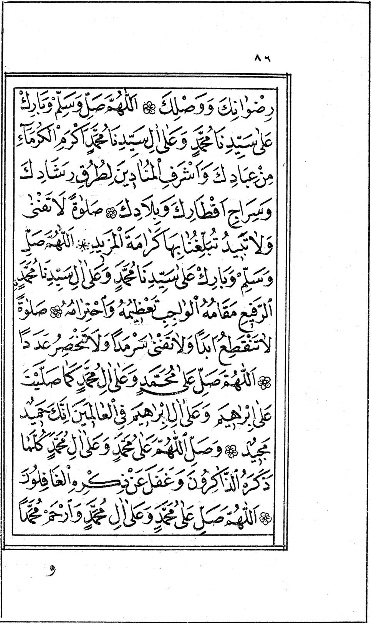 ٨٦
رِضْوَانِكَ وَوَصْلِكَ ۞ اَللّٰهُمَّ صَلِّ وَسَلِّمْ وَبَارِكْ
عَلٰى سَيِّدِنَا مُحَمَّدٍ وَعَلٰى اٰلِ سَيِّدِنَا مُحَمَّدٍ اَكْرَمِ الْكُرَمَآءِ
مِنْ عِبَادِكَ وَاَشْرَفِ الْمُنَادِينَ لِطُرُقِ رَشَادِكَ
وَسِرَاجِ اَقْطَارِكَ وَبِلَادِكَ ۞ صَلٰوةً لَا تَفْنٰى
وَلَا تَبِيدُ تُبَلِّغُنَا بِهَا كَرَامَةَ الْمَزِيدِ ۞ اَللّٰهُمَّ صَلِّ
وَسَلِّمْ وَبَارِكْ عَلٰى سَيِّدِنَا مُحَمَّدٍ وَعَلٰى اٰلِ سَيِّدِنَا مُحَمَّدٍ
الرَّفِيعِ مَقَامُهُ الْوَاجِبِ تَعْظِيمُهُ وَاحْتِرَامُهُ ۞ صَلٰوةً
لَا تَنْقَطِعُ اَبَدًا وَلَا تَفْنٰى سَرْمَدًا وَلَا تَنْحَصِرُ عَدَدًا
۞ اَللّٰهُمَّ صَلِّ عَلٰى مُحَمَّدٍ وَعَلٰى اٰلِ مُحَمَّدٍ كَمَا صَلَّيْتَ
عَلٰى اِبْرٰهِيمَ وَعَلٰى اٰلِ اِبْرٰهِيمَ فِي الْعَالَمِينَ اِنَّكَ حَمِيدٌ
مَجِيدٌ ۞ وَصَلِّ اللّٰهُمَّ عَلٰى مُحَمَّدٍ وَعَلٰى اٰلِ مُحَمَّدٍ كُلَّمَا
ذَكَرَهُ الذَّاكِرُونَ وَغَفَلَ عَنْ ذِكْرِهِ الْغَافِلُونَ
۞ اَللّٰهُمَّ صَلِّ عَلٰى مُحَمَّدٍ وَعَلٰى اٰلِ مُحَمَّدٍ وَارْحَمْ مُحَمَّدًا
و